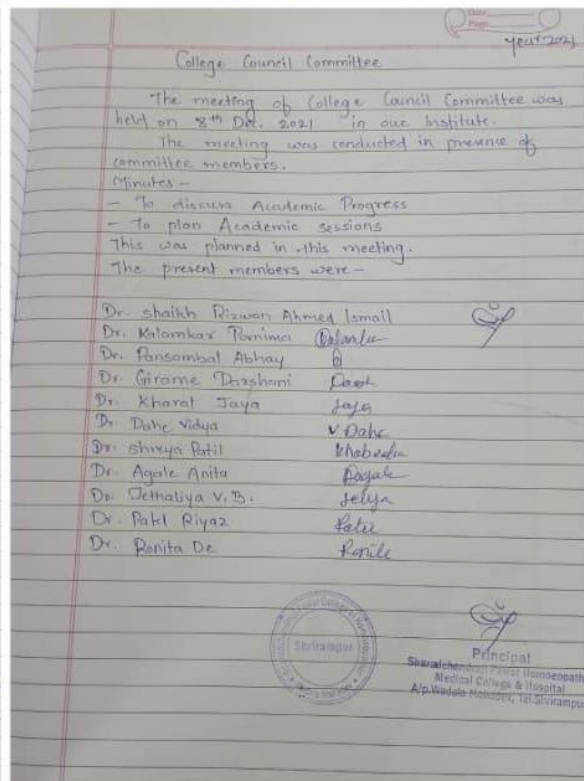 Date
Page
Year-2021
College Council Committee
The meeting of College Council Committee was
held on 8th Dec. 2021 in our Institute.
The meeting was conducted in presence of
committee members.
Minutes -
- To discuss Academic Progress
- To plan Academic sessions
This was planned in this meeting.
The present members were -
Dr. Shaikh Rizwan Ahmed Ismail
Dr. Kalamkar Pornima
Dr. Pansambal Abhay
Dr. Girame Darshani
Dr. Kharat Jaya Jaya
Dr. Dahe Vidya V Dahe
Dr. Shreya Patil
Dr. Agale Anita Aagale
Dr. Jethaliya V. B.
Dr. Patel Riyaz Patel
Dr. Ronita De Ronita
Shrirampur
Principal
Sharadchandraji Pawar Homoeopath
Medical College & Hospital
A/p.Wadala Mahadev, Tal.Shrirampur